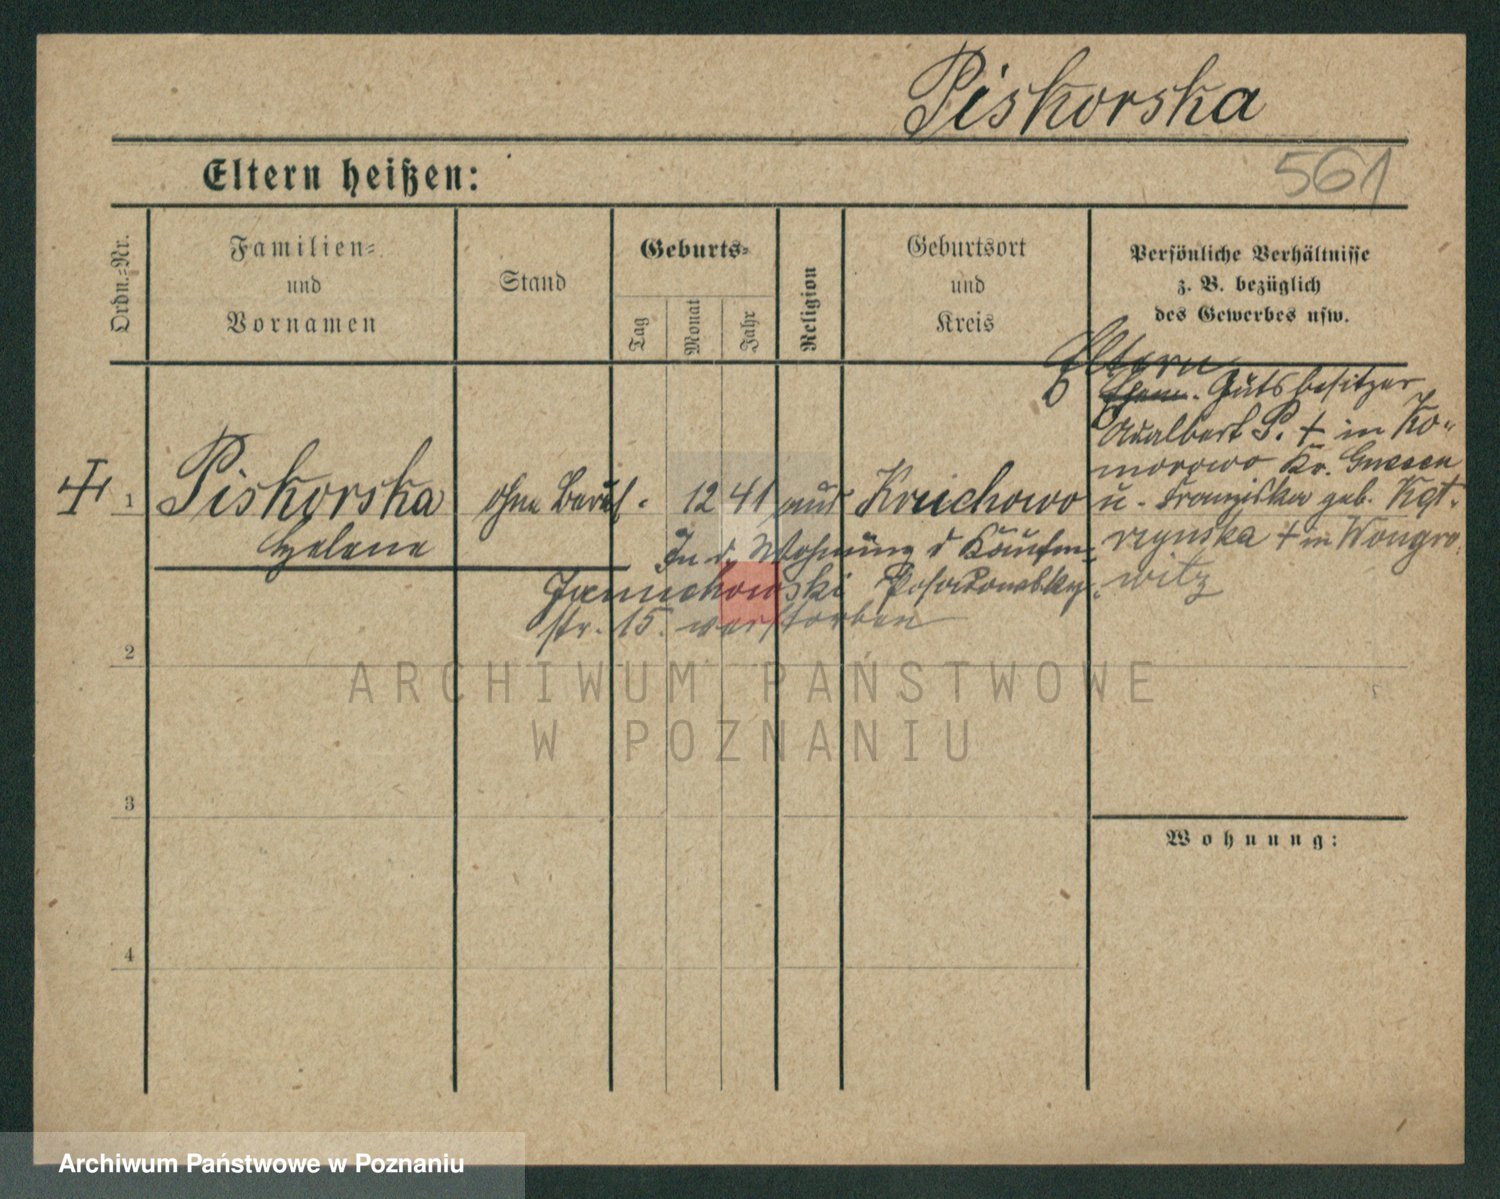 Piskorska
Eltern heißen:
561
Ordn.-Nr.
Familien-
und
Vornamen
Stand
Geburts-
Tag
Monat
Jahr
Religion
Geburtsort
und
Kreis
Persönliche Verhältnisse
z. B. bezüglich
des Gewerbes usw.
Eltern
Gutsbesitzer
Adalbert P. † in Ko-
morowo Kr. Gnesen
u. Franziska geb. Kęt-
rzynska † in Wongro-
witz
1
Piskorska
Helene
ohne Beruf.
12 41
Kruchowo
In d. Wohnung d
Januchowski
str. 15. verstorben
2
3
4
Wohnung:
ARCHIWUM PAŃSTWOWE
W POZNANIU
Archiwum Państwowe w Poznaniu